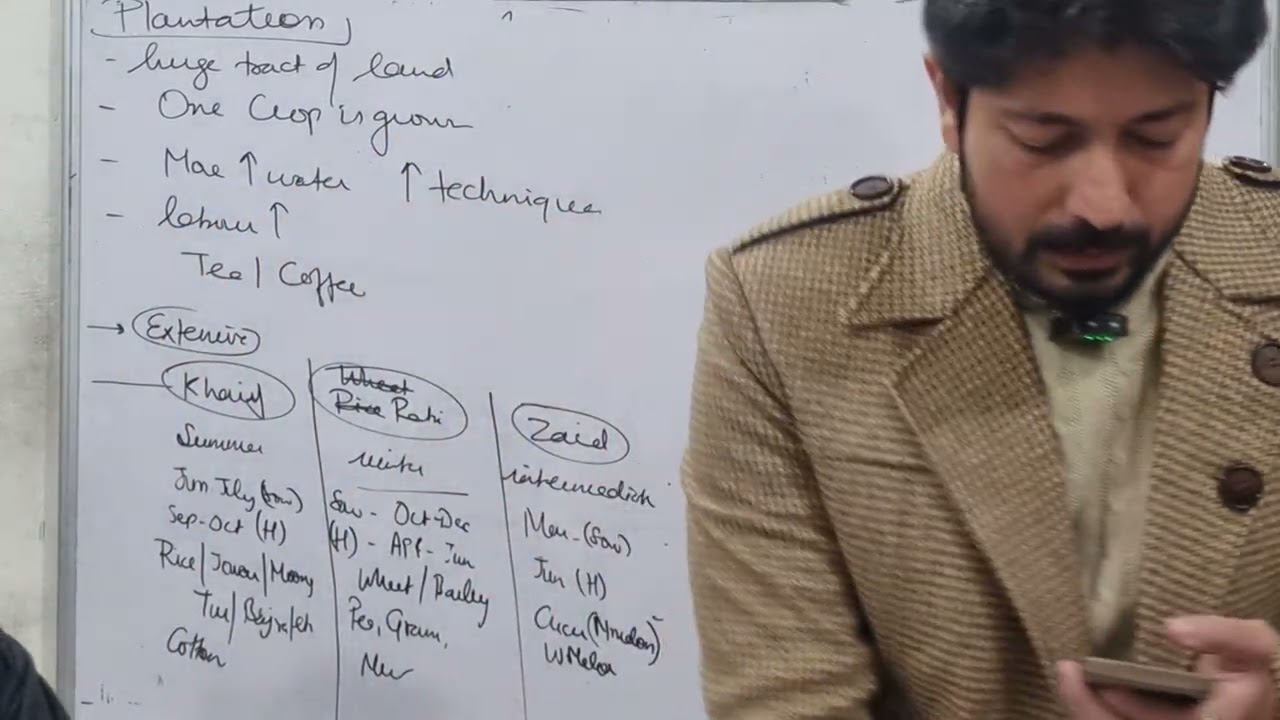 Plantation
- huge tract of land
- One Crop is grown
- ↑ water ↑ technique
- labour ↑
Tea | Coffee
→ Extensive
Kharif
Summer
Jun July (Sow)
Sep-Oct (H)
Rice/Jowar/Moong
Tur/Bajra/
Cotton
Wheat
Rice Rabi
winter
Sow - Oct-Dec
(H) - APR - Jun
Wheat / Barley
Pea, Gram,
Zaid
intermediate
Mar - (Sow)
Jun (H)
Cucu (Mmelon)
WMelon